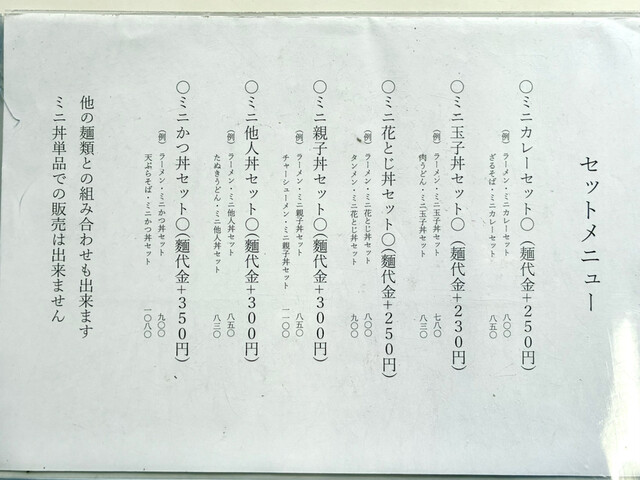 セットメニュー
○ミニカレーセット○（麺代金＋２５０円）
（例）ラーメン・ミニカレーセット　八〇〇
ざるそば・ミニカレーセット　八五〇
○ミニ玉子丼セット○（麺代金＋２３０円）
（例）ラーメン・ミニ玉子丼セット　七八〇
肉うどん・ミニ玉子丼セット　八三〇
○ミニ花とじ丼セット○（麺代金＋２５０円）
（例）ラーメン・ミニ花とじ丼セット　八〇〇
タンメン・ミニ花とじ丼セット　九〇〇
○ミニ親子丼セット○（麺代金＋３００円）
（例）ラーメン・ミニ親子丼セット　八五〇
チャーシューメン・ミニ親子丼セット　一一〇〇
○ミニ他人丼セット○（麺代金＋３００円）
（例）ラーメン・ミニ他人丼セット　八五〇
たぬきうどん・ミニ他人丼セット　八三〇
○ミニかつ丼セット○（麺代金＋３５０円）
（例）ラーメン・ミニかつ丼セット　九〇〇
天ぷらそば・ミニかつ丼セット　一〇八〇
他の麺類との組み合わせも出来ます
ミニ丼単品での販売は出来ません